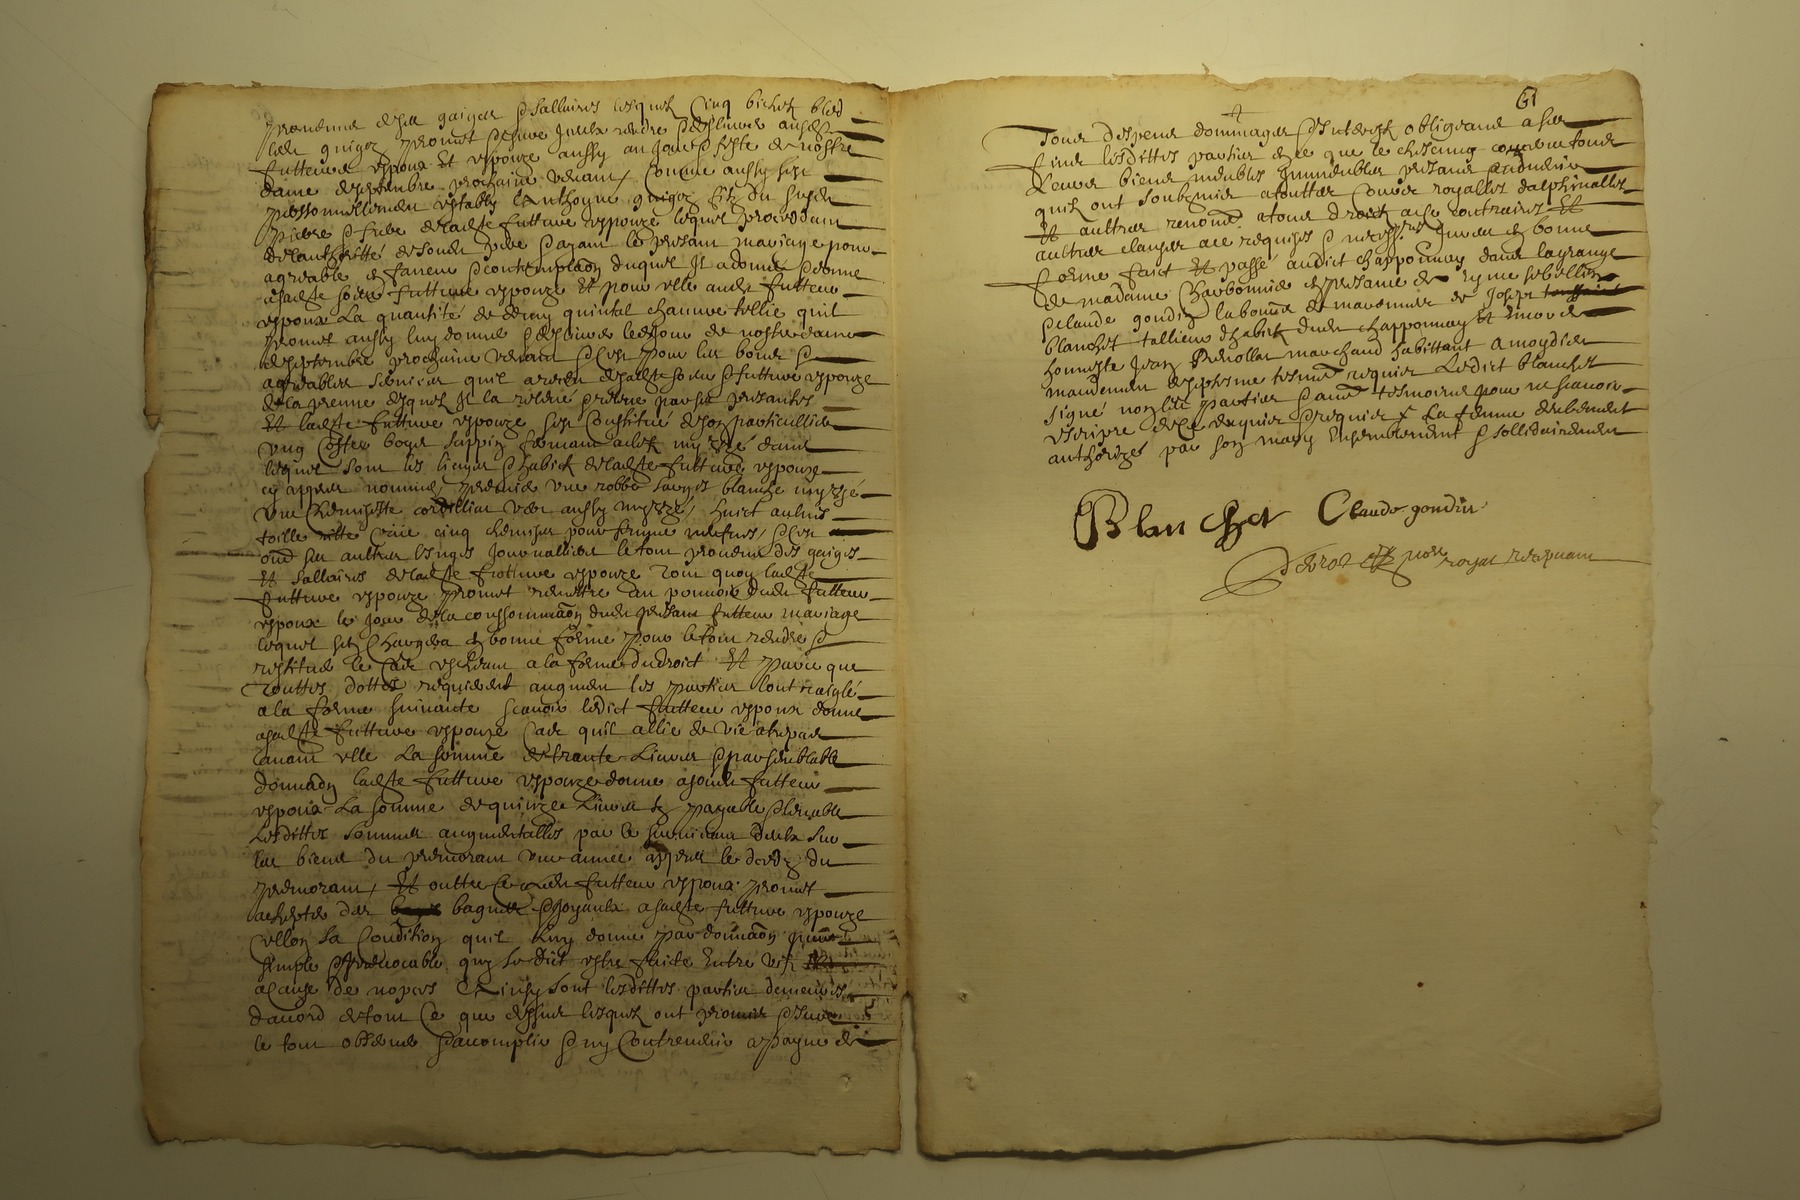 provenus de ses gaiges & sallaires lesquels cinq bichets bled
ledit guigoz promet & sera tenu rendre & deslivrer ausdits
futteurs espoux Et espouze aussy au jour & feste de nostre
dame de septembre prochaine venant, Comme aussy s'est
personnellement estably Anthoyne guigoz filz du susdit
pierre & frere de ladite futture espouze lequel procedant
de lauthoritté de sondit pere & ayant le presant mariage pour
agreable en faveur & contemplaõn duquel Il a donné & donne
a ladite soeur futture espouze Et pour elle audit futteur
espoux La quantité de demy quintal chanvre tellie quil
promet aussy luy donner & deslivrer le jour de nostre dame
de septembre prochaine venant & c'est pour les bons &
agreables services quil a receu de ladite soeur & futture espouze
de la preuve desquels Il la relevé & releve par ces presantes
Et ladite futture espouze s'est Constitué de son particullier
ung Coffre boys sappin fermant a clef my uzé dans
lequel sont les linges & habits de ladite futture espouze
cy appres nommés, premier une robbe sarges blanche my uzé
une Chemisette cordilliat vert aussy my uzé, huict aulnes
toille cinq chemises pour femme neufves, & c'est
oultre ses aultres linges journalliers le tout provenu des gaiges
Et sallaires de ladite futture espouze Tout quoy ladite
futture espouze promet remettre au pouvoir dudit futteur
espoux le jour de la conssommaõn dudit presant futteur mariage
lequel s'en chargera en bonne forme pour le tout rendre &
restituer le Cas escheant a la forme du droict Et parce que
Touttes dottes requierent augment les parties l'ont reiglé
a la forme suivante scavoir ledict futteur espoux donne
a ladite futture espouze Cas quil allie de vie a trepas
avant elle La somme de trante Livres & par semblable
donnaõn ladite futture espouze donne a sondit futteur
espoux La somme de quinze Livres payable & levable
Lesdittes sommes augmentalles par le survivant d'eulx sur
les biens du premorant une année appres le decedz du
premorant, Et outtre Ce ledit futteur espoux promet
achepter des bagues & joyaulx a ladite futture espouze
sellon sa Condition quil luy donne par donnaõn pure
simple & irrevocable quy se dict estre faicte Entre vifz
a cause de nopces Et ainsy sont lesdittes parties demeurées
d'acord de tout Ce que dessus lesquels ont promis & juré
le tout observer & acomplir & ny Contrevenir a payne de
61
Tous despens dommages & Interestz obligeans a ses
fins lesdittes parties en ce que le chescung concerne tous
Leurs biens meubles Immeubles presans & advenir
quilz ont soubzmis a touttes Cours royalles dalphinalles
Et aultres renoncé a tous droicts a ce contraires Et
aultres clauzes a ce requises & necessres Juree en bonne
forme faict Et passé audict chapponnay dans lagrange
de madame Charbonnier en presance de
& claude gondin laboureur & maronnier de Joseph
blanchet tallieur d'habits dudit chapponnay Et encor de
honneste Jean Perollat marchand habittant a moydieu
mandement de septesme tesmoins requis Ledict blanchet
signé non les parties & autres tesmoins pour ne scavoir
escripre de ce enquis & requis & La femme deubement
authorizé par son mary Ensemblement & sollidairement
Blanchet Claude gondin
nore royal recepvant